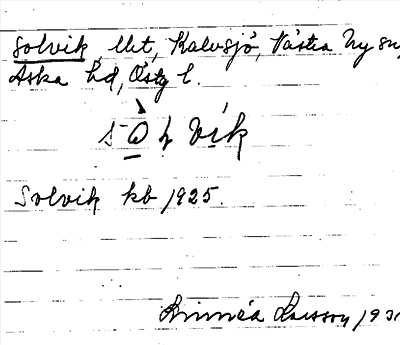 Solvik, Utt, Kalvsjö, Västra Ny sn,
Aska hd, Östg l.
Solvik kb 1925.
Linnéa Larsson, 193